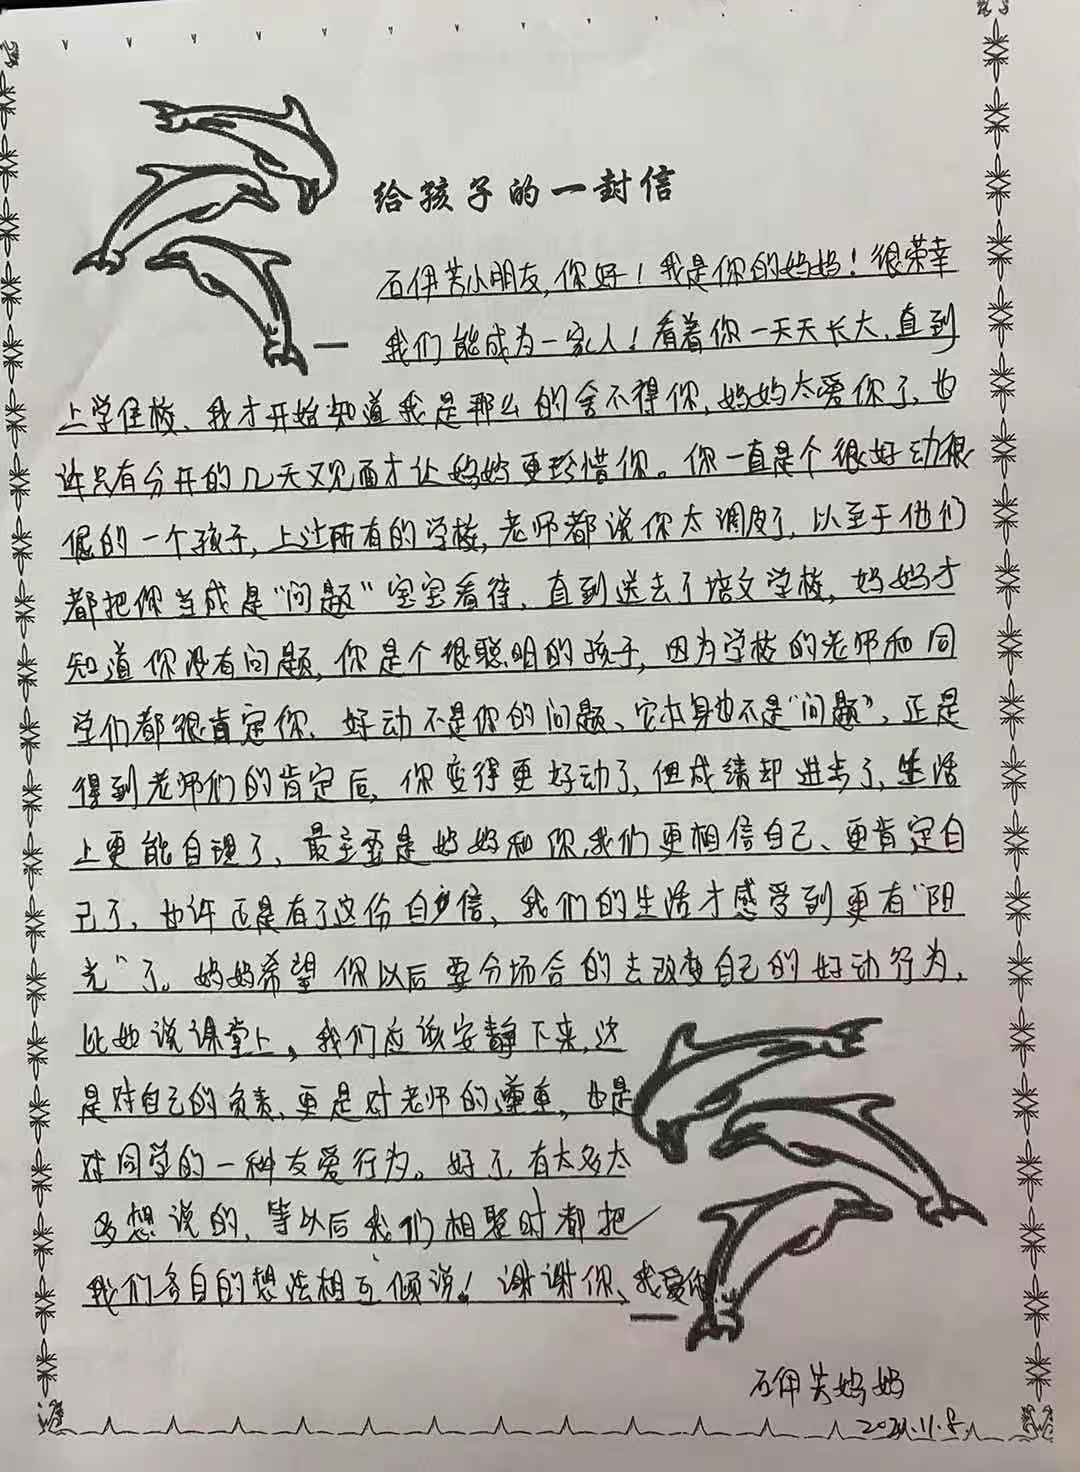 给孩子的一封信
石伊芙小朋友,你好!我是你的妈妈!很荣幸
我们能成为一家人!看着你一天天长大,直到
上学住校、我才开始知道我是那么的舍不得你,妈妈太爱你了、也
许只有分开的几天又见面才让妈妈更珍惜你。你一直是个很好动很
倔的一个孩子,上过所有的学校,老师都说你太调皮了,以至于他们
都把你当成是“问题”宝宝看待、直到送去了培文学校,妈妈才
知道你没有问题,你是个很聪明的孩子,因为学校的老师和同
学们都很肯定你、好动不是你的问题、它本身也不是“问题”,正是
得到老师们的肯定后,你变得更好动了,但成绩却进步了,生活
上更能自理了、最主要是妈妈和你,我们更相信自己、更肯定自
己了、也许正是有了这份自信、我们的生活才感受到更有“阳
光”了。妈妈希望你以后要分场合的去改变自己的好动行为,
比如说课堂上,我们应该安静下来,这
是对自己的负责,更是对老师的尊重,也是
对同学的一种友爱行为。好了,有太多太
多想说的,等以后我们相聚时都把
我们各自的想法相互倾说!谢谢你、我爱你
石伊芙妈妈
2021.11.8